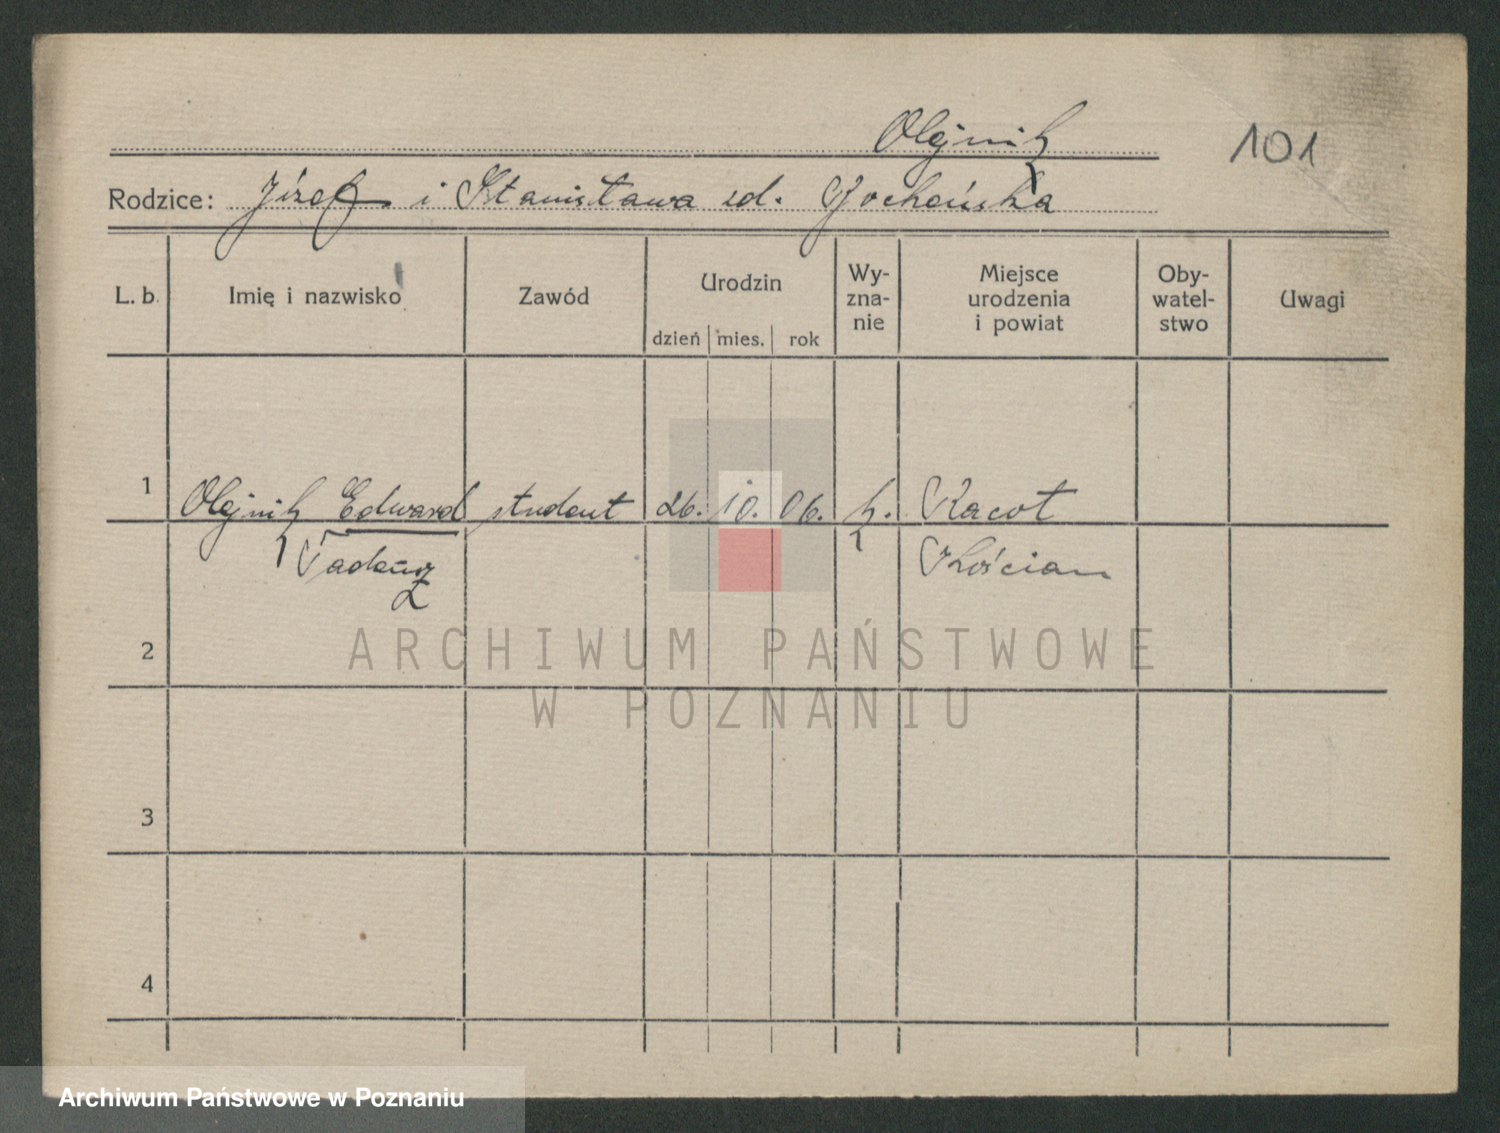 Olejnik
101
Rodzice: Józef i Stanisława zd. Kocheńska
L. b. Imię i nazwisko Zawód Urodzin dzień mies. rok Wy-zna-nie Miejsce urodzenia i powiat Oby-watel-stwo Uwagi
1 Olejnik Edward student 26. 10. 06. k. Racot
Tadeusz Kościan
2
ARCHIWUM PAŃSTWOWE
W POZNANIU
3
4
Archiwum Państwowe w Poznaniu